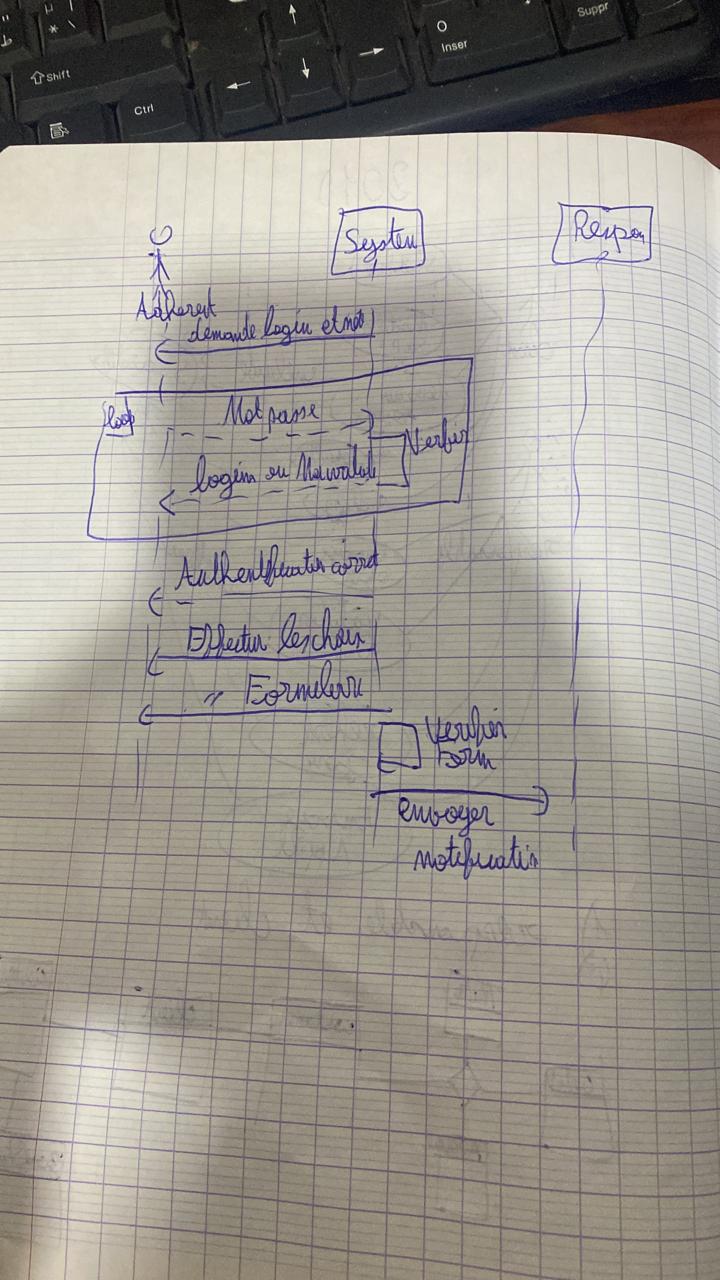 Shift
Ctrl
Inser
Suppr
System
Respon
Adherent
demande login et mot
loop
Mot passe
Verfier
login ou
Authentification corret
Effectuer les choix
" Formulaire
Verifier
Form
envoyer
notification